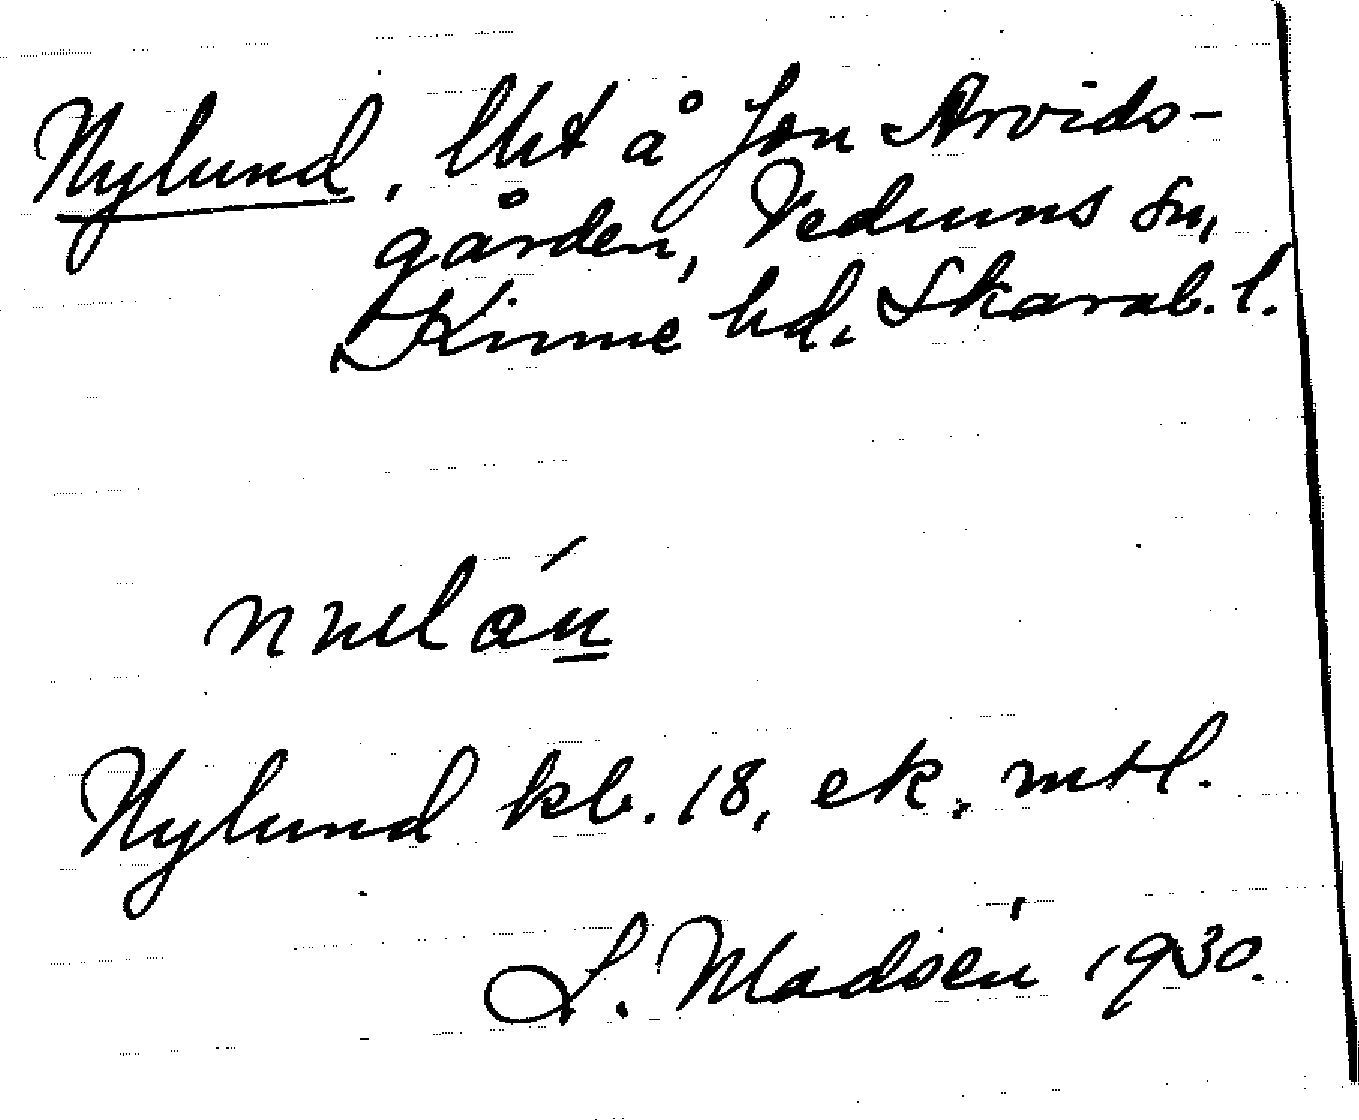 Nylund, lht å Jon Arvids-
gården, Vedums sn,
Kinne hd, Skarab. l.
Nylund kb. 18, ek. mtl.
L. Madsén 1930.